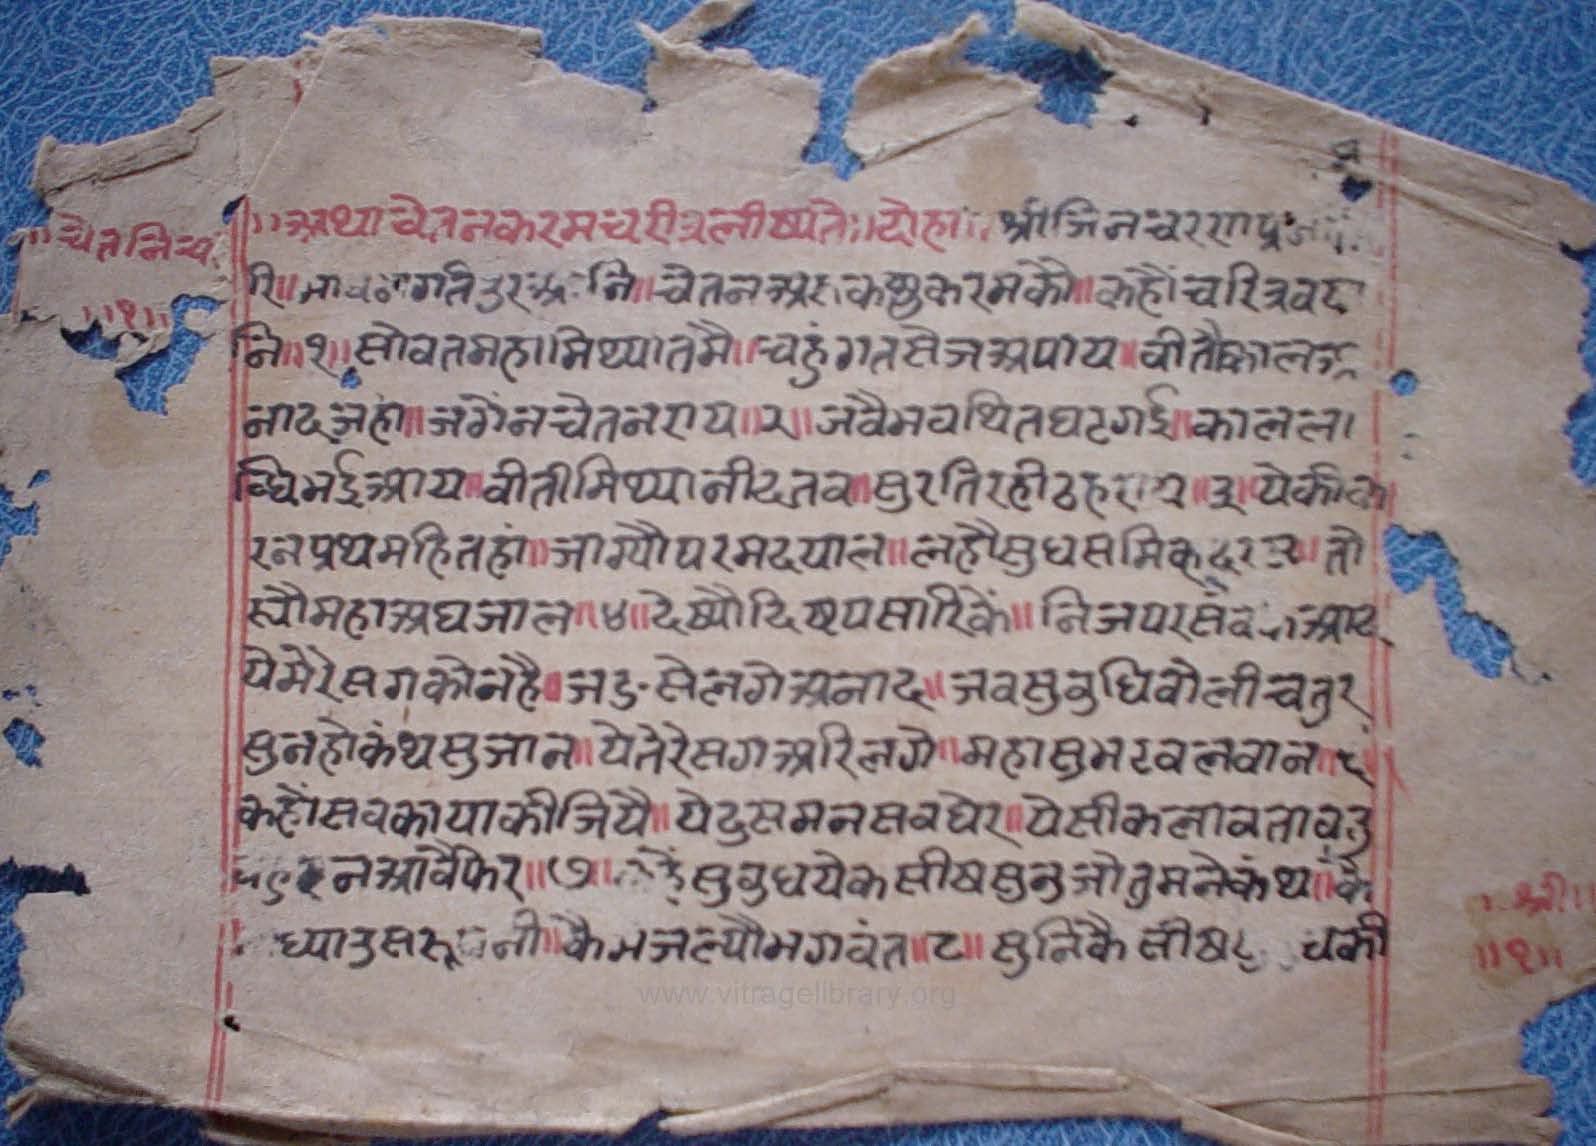 ॥चेतनिच्य
॥१॥
॥अथा चेतनकरमचरीत्रलीष्यते॥दोहा॥ श्रीजिनचररण
रि॥ चेतनअरुकष्टुकरमकौ॥कहौंचरित्रवदा
नि॥१॥सोवतमहामिथ्यातमै॥चहुंगतसेजअपाय॥वीतौकालअ
नादजहां॥जगेनचेतनराय॥२॥जवैभवथितघटगई॥काललवा
ब्धिभईआय॥वीतीमिथ्यानीदतव॥सुरतिरहीठहराय॥३॥येकीक
रनप्रथमहितहां॥जाग्यौपरमदयाल॥लह्यौसुधसमिकदरस॥तो
स्यौमहाअघजाल॥४॥देष्यौदिष्टपसारिकें॥निजपरसंव आद
येमेरेसगकोनहै॥जडसेलगेअनाद॥जवसुवुधिवोलीचतुर
सुनहोकंथसुजान॥येतेरेसगअरिलगे॥महासुभटवलवान॥६॥
कहौंसवकायाकीजियै॥येदुसमनसवघेर॥येसीकलावतावतु
नआंवैफेर॥७॥ सुवुधयेकसीषसुनुजोतुमनेकंथ॥कै
ध्याउसरू नी॥कैभजल्यौभगवंत॥८॥सुनिकैसीष धकी
श्री॥
॥१॥
www.vitragelibrary.org